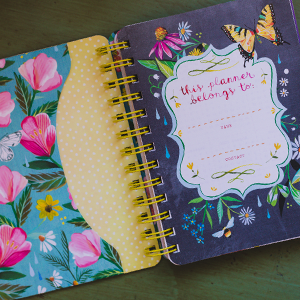 this planner
belongs to:
NAME
CONTACT